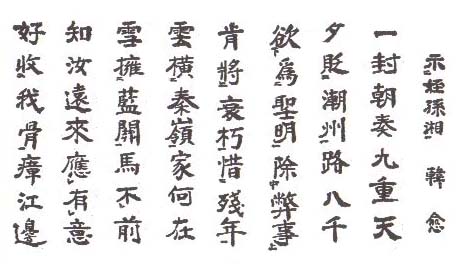 示姪孫湘 韓愈
一封朝奏九重天
夕貶潮州路八千
欲爲聖明除弊事
肯將衰朽惜殘年
雲橫秦嶺家何在
雪擁藍關馬不前
知汝遠來應有意
好收我骨瘴江邊